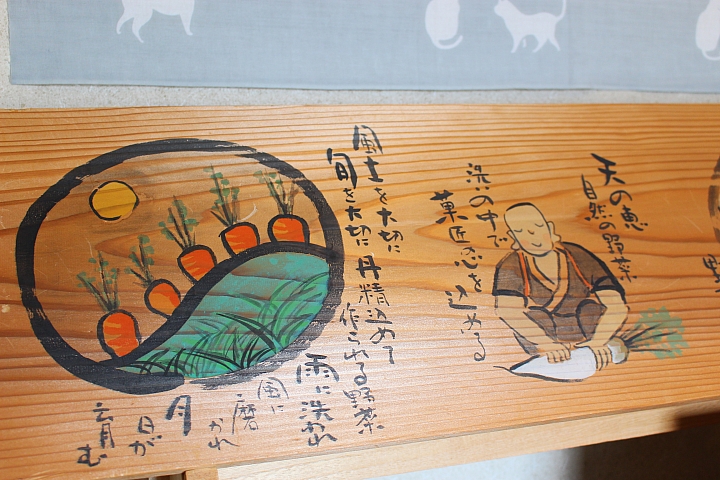 天の恵
自然の野菜
洗の中で
菓匠恋を
込める
風土を大切に
旬を大切に 丹精込めて
作られる野菜
雨に洗われ
風に
磨かれ
月
日が
育む